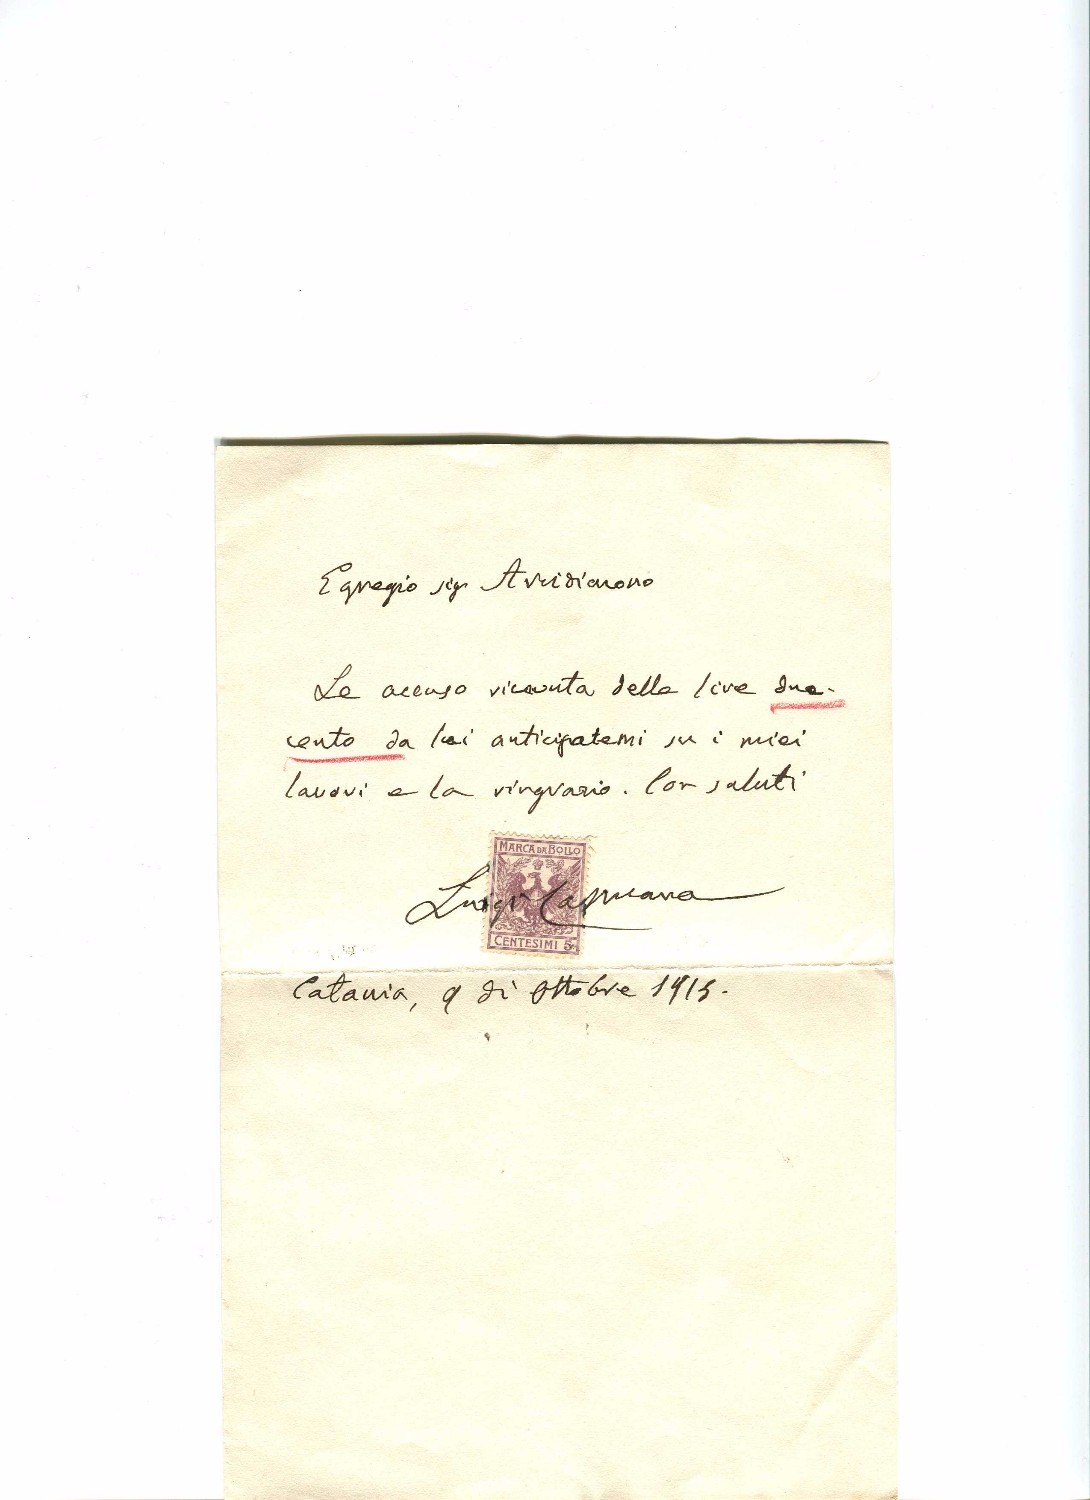 Egregio sig Arcidiacono
Le accuso ricevuta delle lire due-
cento da lei anticipatemi su i miei
lavori e la ringrazio. Con saluti
MARCA DA BOLLO
Luigi Capuana
CENTESIMI 5
Catania, 9 di ottobre 1915.